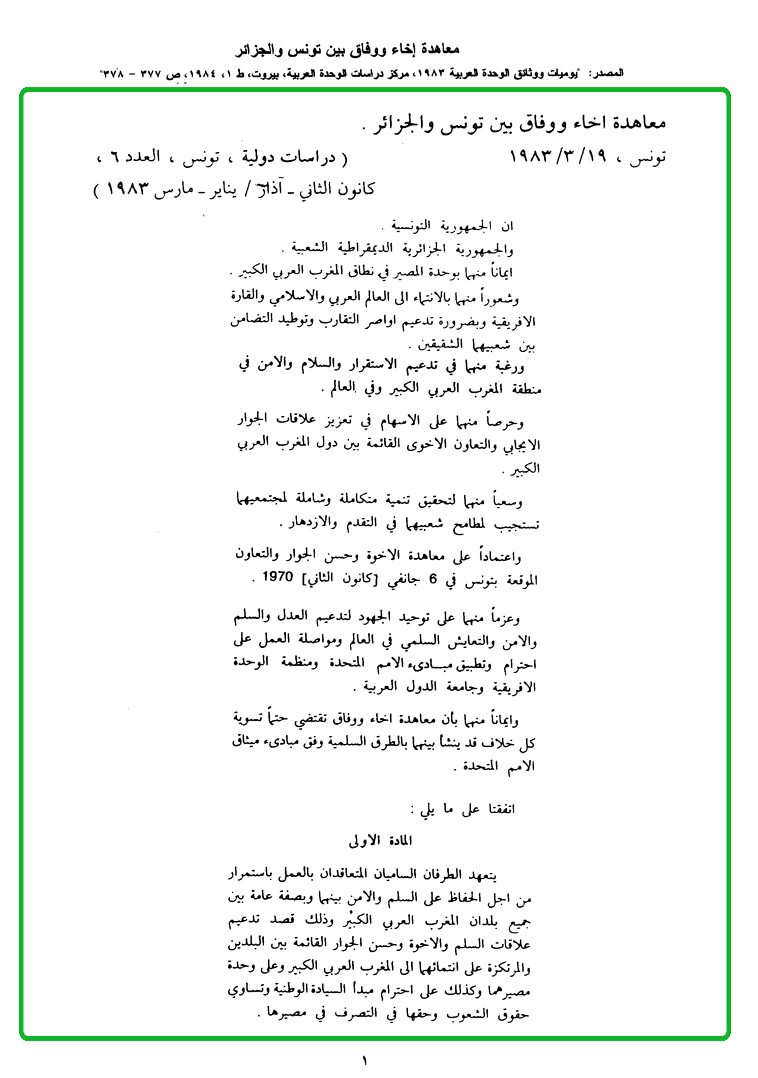 معاهدة إخاء ووفاق بين تونس والجزائر
المصدر: "يوميات ووثائق الوحدة العربية ١٩٨٣، مركز دراسات الوحدة العربية، بيروت، ط ١، ١٩٨٤، ص ٣٧٧ - ٣٧٨"
معاهدة اخاء ووفاق بين تونس والجزائر .
تونس ، ١٩/ ٣/ ١٩٨٣
( دراسات دولية ، تونس ، العدد ٦ ،
كانون الثاني ـ آذار / يناير ـ مارس ١٩٨٣ )
ان الجمهورية التونسية .
والجمهورية الجزائرية الديمقراطية الشعبية .
ايماناً منهما بوحدة المصير في نطاق المغرب العربي الكبير .
وشعوراً منهما بالانتماء الى العالم العربي والاسلامي والقارة
الافريقية وبضرورة تدعيم اواصر التقارب وتوطيد التضامن
بين شعبيهما الشقيقين .
ورغبة منهما في تدعيم الاستقرار والسلام والامن في
منطقة المغرب العربي الكبير وفي العالم .
وحرصاً منهما على الاسهام في تعزيز علاقات الجوار
الايجابي والتعاون الاخوى القائمة بين دول المغرب العربي
الكبير .
وسعياً منهما لتحقيق تنمية متكاملة وشاملة لمجتمعيهما
تستجيب لمطامح شعبيهما في التقدم والازدهار .
واعتماداً على معاهدة الاخوة وحسن الجوار والتعاون
الموقعة بتونس في 6 جانفي [كانون الثاني] 1970 .
وعزماً منهما على توحيد الجهود لتدعيم العدل والسلم
والامن والتعايش السلمي في العالم ومواصلة العمل على
احترام وتطبيق مبادىء الامم المتحدة ومنظمة الوحدة
الافريقية وجامعة الدول العربية .
وايماناً منهما بأن معاهدة اخاء ووفاق تقتضي حتماً تسوية
كل خلاف قد ينشأ بينهما بالطرق السلمية وفق مبادىء ميثاق
الامم المتحدة .
اتفقتا على ما يلي :
المادة الاولى
يتعهد الطرفان الساميان المتعاقدان بالعمل باستمرار
من اجل الحفاظ على السلم والامن بينهما وبصفة عامة بين
جميع بلدان المغرب العربي الكبير وذلك قصد تدعيم
علاقات السلم والاخوة وحسن الجوار القائمة بين البلدين
والمرتكزة على انتمائهما الى المغرب العربي الكبير وعلى وحدة
مصيرهما وكذلك على احترام مبدأ السيادة الوطنية وتساوي
حقوق الشعوب وحقها في التصرف في مصيرها .
١